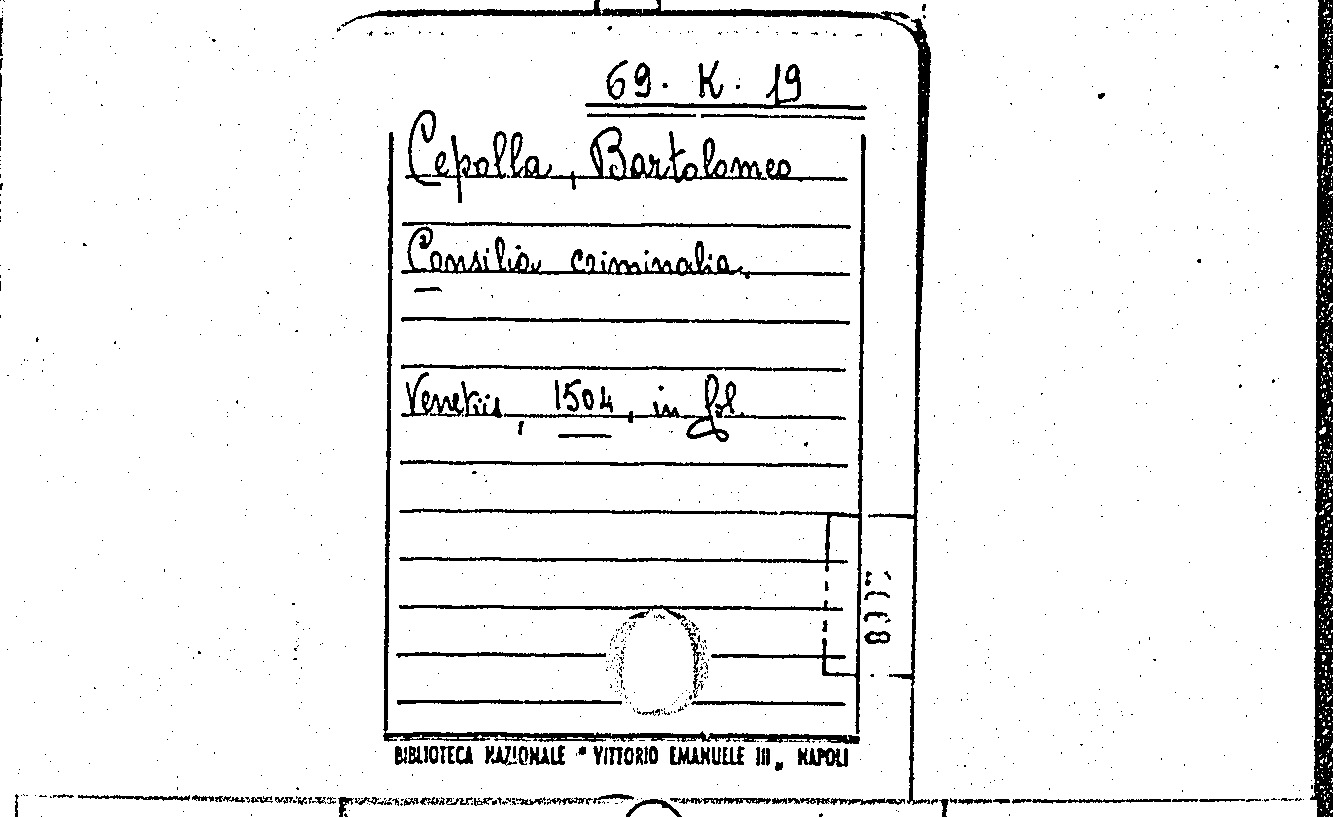 69. K. 19
Cepolla, Bartolomeo
Consilia criminalia.
Venetiis, 1504, in fol.
BIBLIOTECA NAZIONALE " VITTORIO EMANUELE III „ NAPOLI